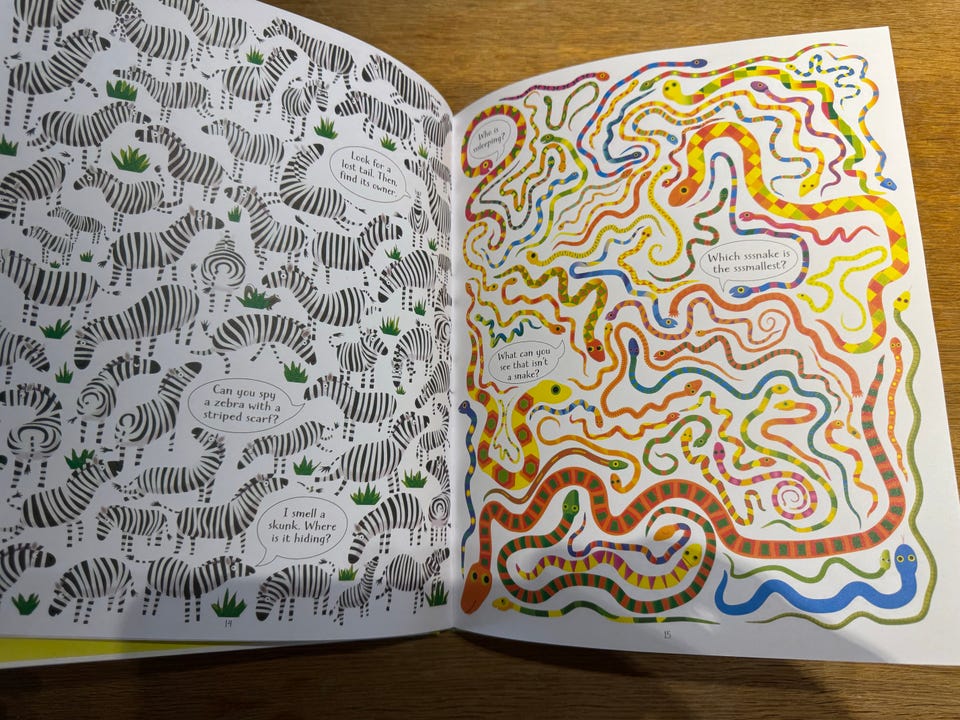 Look for a
lost tail. Then,
find its owner.
Can you spy
a zebra with a
striped scarf?
I smell a
skunk. Where
is it hiding?
14
Who is
sleeping?
Which sssnake is
the sssmallest?
What can you
see that isn't
a snake?
15